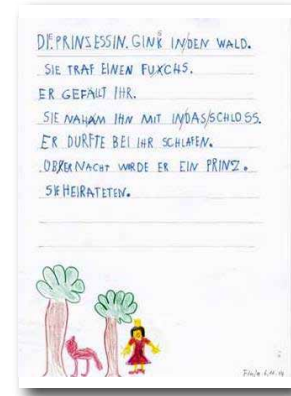 DIE.PRINSESSIN.GINK IN/DEN WALD.
SIE TRAF EINEN FUXCHS.
ER GEFÄLLT IHR.
SIE NAHAM IHN MIT IN/DAS/SCHLOSS.
ER DURFTE BEI IHR SCHLAFEN.
ÜBER NACHT WURDE ER EIN PRINZ.
SIE HEIRATETEN.